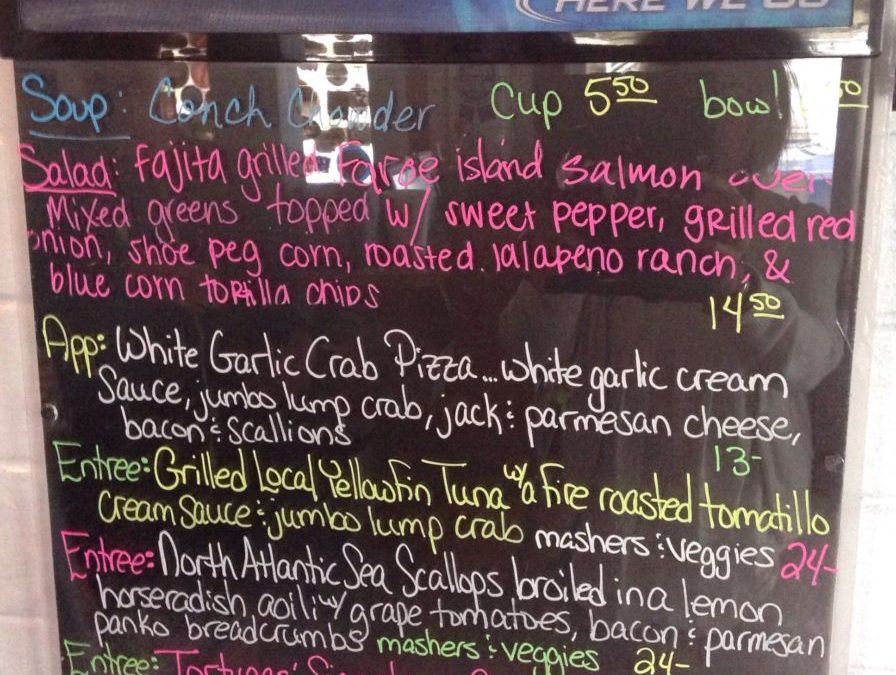 HERE WE GO
Soup: Conch Chowder Cup 5.50 bowl 50
Salad: Fajita grilled Faroe island Salmon over
Mixed greens topped w/ sweet pepper, grilled red
onion, shoe peg corn, roasted Jalapeno ranch, &
blue corn tortilla chips
14.50
App: White Garlic Crab Pizza...white garlic cream
Sauce, jumbo lump crab, jack & parmesan cheese,
bacon & scallions
13-
Entree: Grilled Local Yellowfin Tuna w/ a fire roasted tomatillo
Cream Sauce & jumbo lump crab mashers & veggies 24-
Entree: North Atlantic Sea Scallops broiled in a lemon
horseradish aoili w/ grape tomatoes, bacon & parmesan
panko breadcrumbs mashers & veggies 24-
Entree: